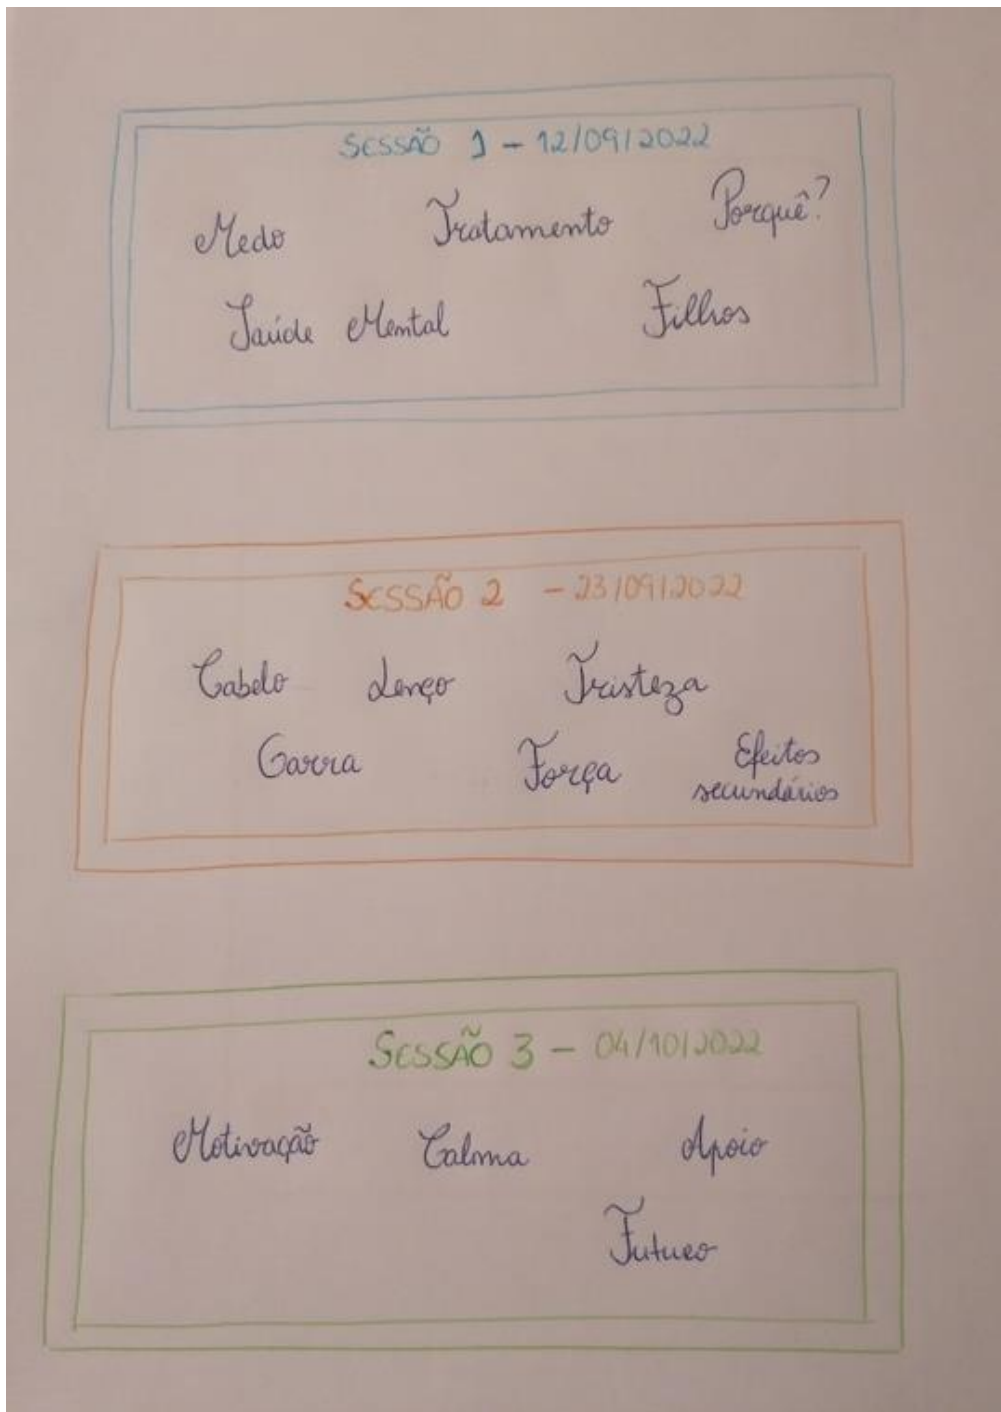 SESSÃO 1 - 12/09/2022
Medo Tratamento Porquê?
Saúde Mental Filhos
SESSÃO 2 - 23/09/2022
Cabelo Lenço Tristeza
Garra Força Efeitos
secundários
SESSÃO 3 - 04/10/2022
Motivação Calma Apoio
Futuro